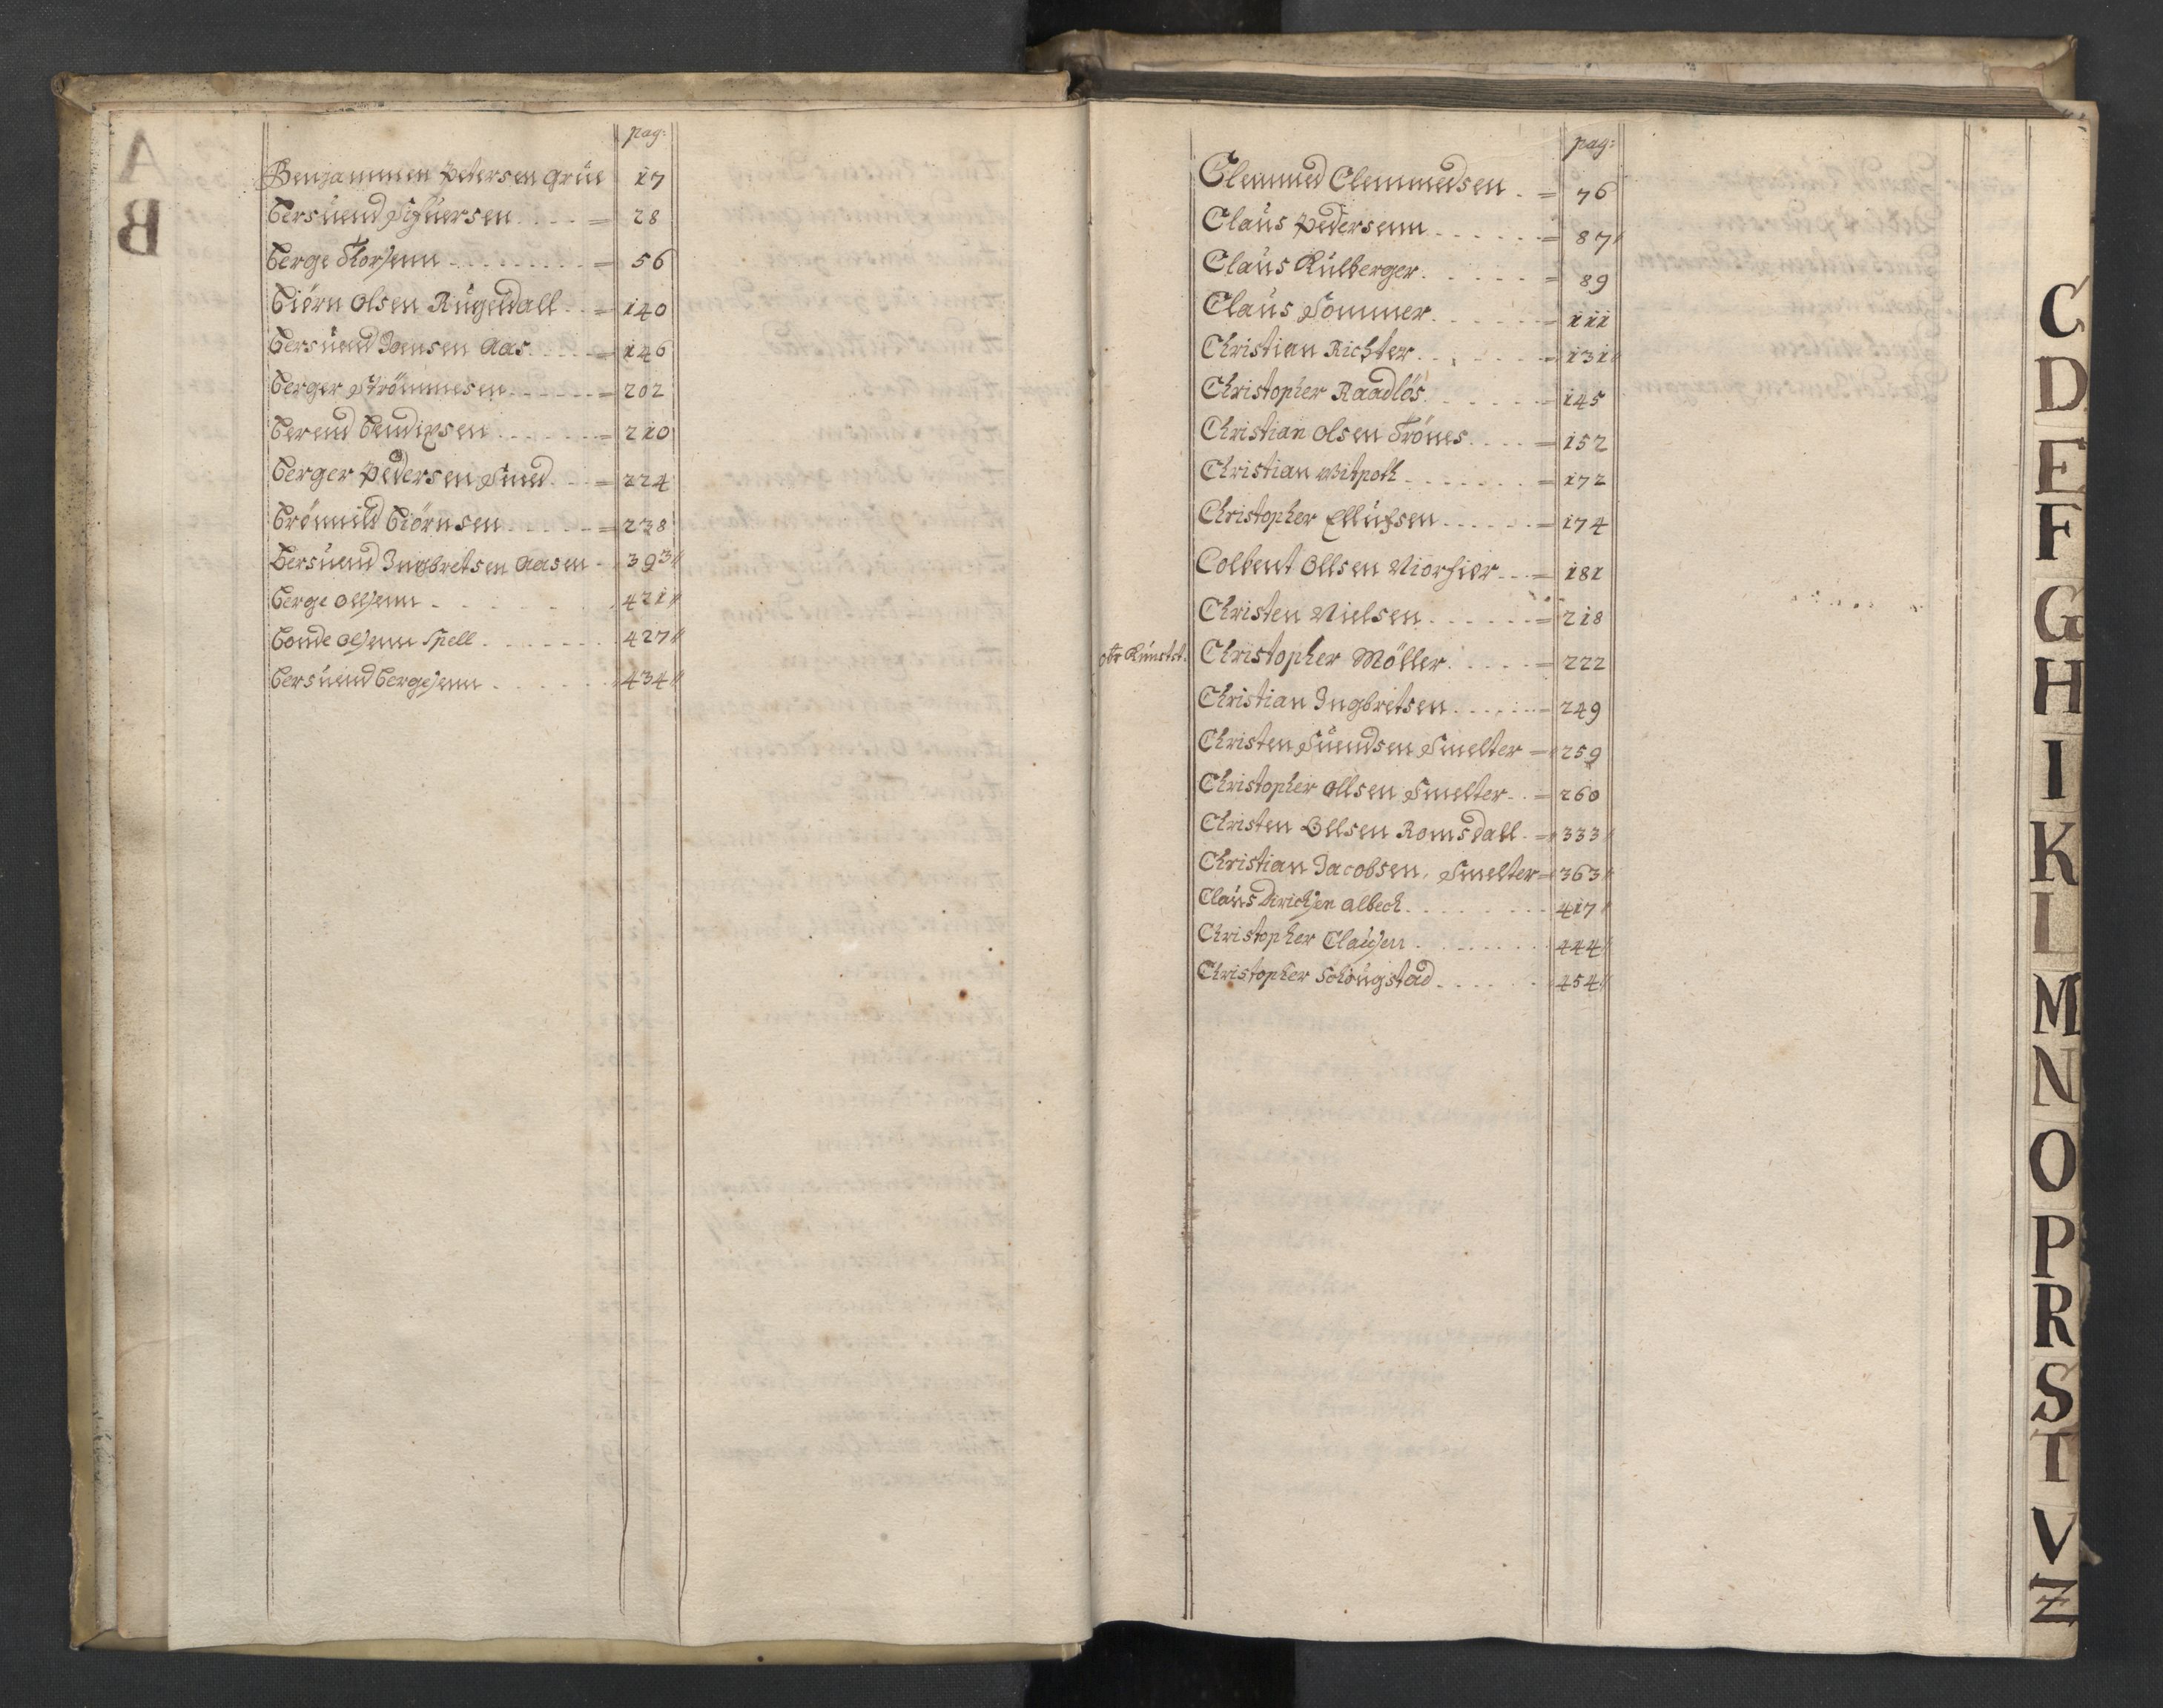 A
B
pag:
Benjammen Pedersen Grüe 17
Bersüend Sifüersen = 28
Berge Torsenn = 56
Biörn Olsen Rügeldall = 140
Bersüend Joensen Aas = 146
Berger Strömmesen = 202
Berend Bendixsen = 210
Berger Pedersen Smed = 224
Brönnild Biörnsen = 238
Bersüend Ingbretsen Aasen 393
Berge Olsenn 421
Bonde Olsenn Spell 427
Bersüend Bergesenn 434
pag:
Clemmed Clemmedsen = 76
Claüs Pedersenn = 87
Claüs Külberger = 89
Claüs Sommer = 111
Christian Richter = 131
Christopher Raadlös = 145
Christian Olsen Trönes = 152
Christian Witpoth = 172
Christopher Ellüfsen = 174
Colbent Ollsen = 181
Christen Nielsen = 218
Christopher Möller = 222
Christian Ingbretsen = 249
Christen Süendsen Smelter = 259
Christopher Ollsen Smelter = 260
Christen Ollsen Romsdall = 333
Christian Jacobsen Smelter = 363
Claüs Dirichsen Albech 417
Christopher Claüsen 444
Christopher Schougstad 454
C
D
E
F
G
H
I
K
L
M
N
O
P
R
S
T
V
Z